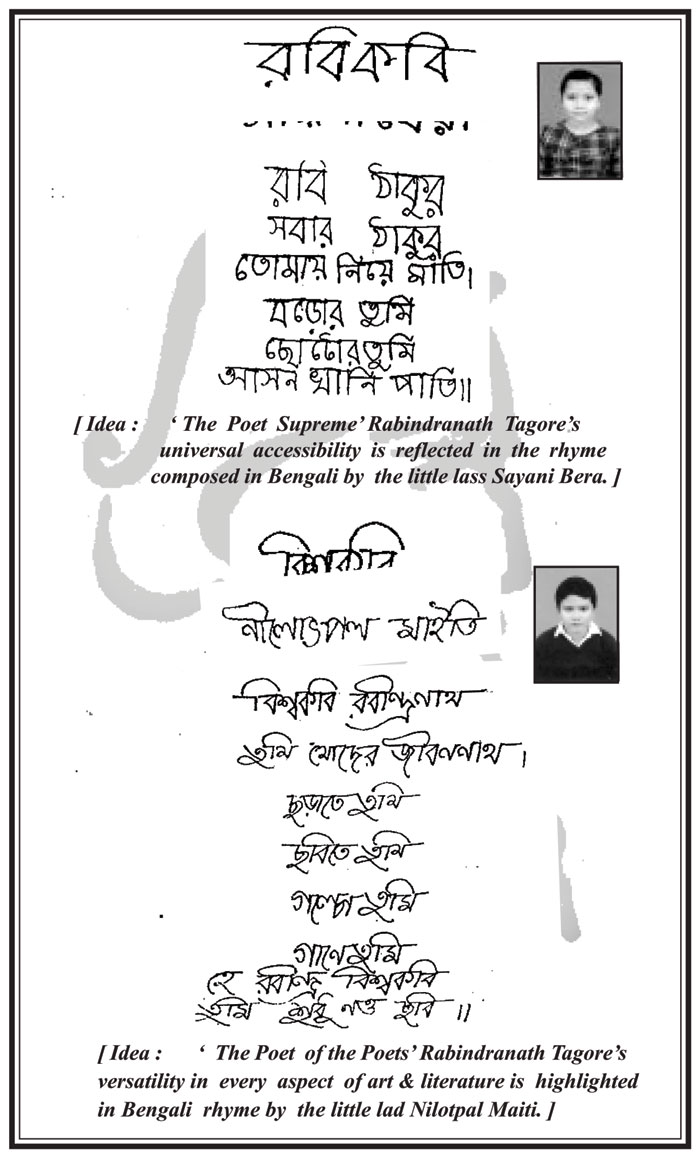 রবিকবি
রবি ঠাকুর
সবার ঠাকুর
তোমায় নিয়ে মাতি।
বড়োর তুমি
ছোটোর তুমি
আসন খানি পাতি॥
[ Idea : ‘ The Poet Supreme’ Rabindranath Tagore’s
universal accessibility is reflected in the rhyme
composed in Bengali by the little lass Sayani Bera. ]
বিশ্বকবি
নীলোৎপল মাইতি
বিশ্বকবি রবীন্দ্রনাথ
তুমি মোদের জীবননাথ।
ছড়াতে তুমি
ছবিতে তুমি
গল্পে তুমি
গানে তুমি
হে রবীন্দ্র বিশ্বকবি
তুমি শুধু নও ছবি॥
[ Idea : ‘ The Poet of the Poets’ Rabindranath Tagore’s
versatility in every aspect of art & literature is highlighted
in Bengali rhyme by the little lad Nilotpal Maiti. ]